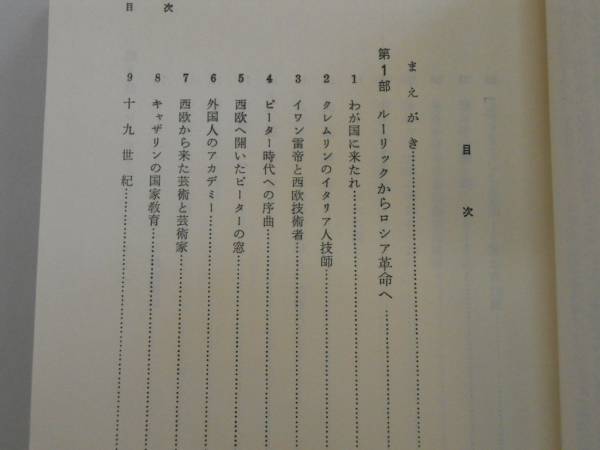 目次
まえがき
第1部 ルーリックからロシア革命へ
1 わが国に来たれ
2 クレムリンのイタリア人技師
3 イワン雷帝と西欧技術者
4 ピーター時代への序曲
5 西欧へ開いたピーターの窓
6 外国人のアカデミー
7 西欧から来た芸術と芸術家
8 キャザリンの国家教育
9 十九世紀
目次